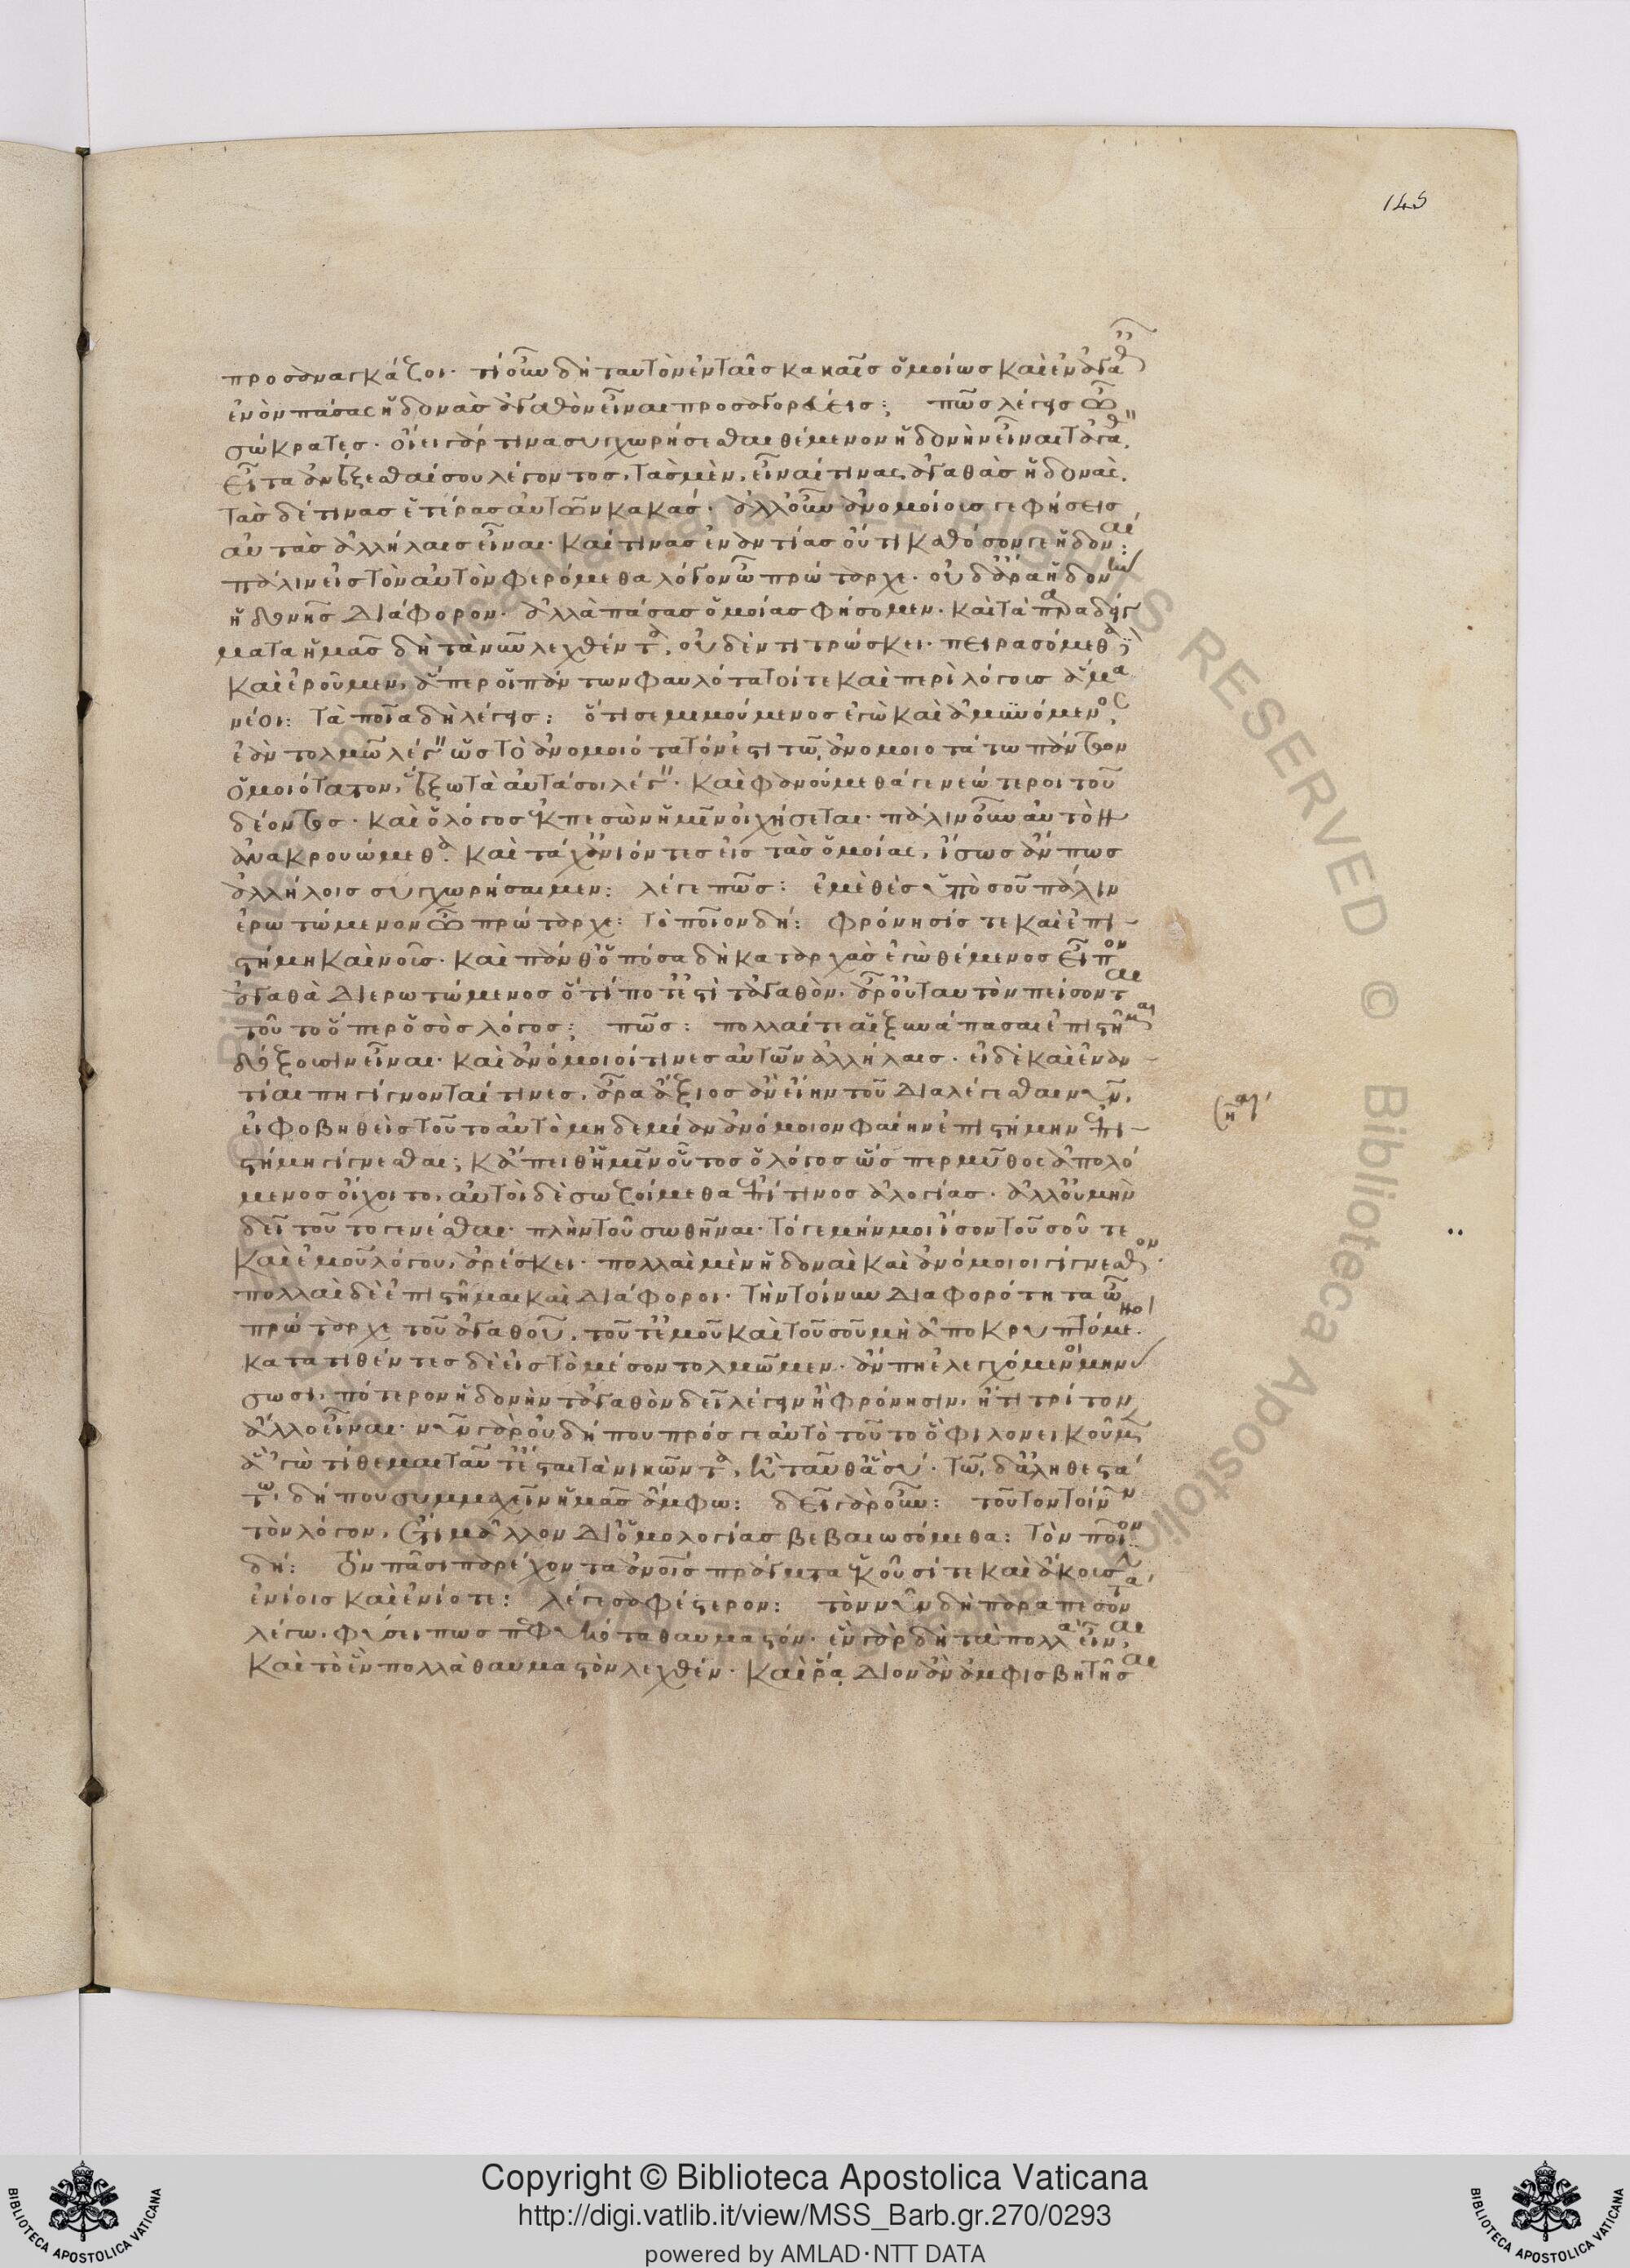 145
προσαναγκάζοι· τί οὖν δὴ ταυτὸν ἐν ταῖς κακαῖς ὁμοίως καὶ ἐν ἀγαθαῖς
ἐνὸν πάσας ἡδονὰς ἀγαθὸν εἶναι προσαγορεύεις; πῶς λέγεις ὦ
σώκρατες· οἴει γάρ τινα συγχωρήσεσθαι θέμενον ἡδονὴν εἶναι τἀγαθόν.
εἶτα ἀνέξεσθαί σου λέγοντος, τὰς μὲν, εἶναί τινας ἀγαθὰς ἡδονάς.
τὰς δέ τινας ἑτέρας αὐτῶν κακάς· ἀλλ' οὖν ἀνομοίοις γε φήσεις
αὐτὰς ἀλλήλαις εἶναι· καί τινας ἐναντίας οὔτι καθόσον γε ἡδοναί:
πάλιν εἰς τὸν αὐτὸν φερόμεθα λόγον ὦ πρώταρχε· οὐδ' ἄρα ἡδονὴν
ἡδονῆς διάφορον· ἀλλὰ πάσας ὁμοίας φήσομεν· καὶ τὰ παραδείγ
ματα ἡμᾶς δὴ τὰ νῦν λεχθέντα, οὐδὲν τιτρώσκει· πειρασόμεθα
καὶ ἐροῦμεν, ἅπερ οἱ πάντων φαυλότατοί τε καὶ περὶ λόγοις ἅμα
νέοι: τὰ ποῖα δὴ λέγεις: ὅτι σε μιμούμενος ἐγὼ καὶ ἀμυνόμενος,
ἐὰν τολμῶ λέγειν ὡς τὸ ἀνομοιότατόν ἐστι τῶ ἀνομοιοτάτω πάντων
ὁμοιότατον, ἕξω τὰ αὐτά σοι λέγειν· καὶ φανούμεθά γε νεώτεροι τοῦ
δέοντος· καὶ ὁ λόγος ἐκπεσὼν ἡμῖν οἰχήσεται· πάλιν οὖν αὐτὸν
ἀνακρουώμεθα· καὶ τάχ' ἂν ἰόντες εἰς τὰς ὁμοίας, ἴσως ἄν πως
ἀλλήλοις συγχωρήσαιμεν: λέγε πῶς: ἐμὲ θὲς ὑπὸ σοῦ πάλιν
ἐρωτώμενον ὦ πρώταρχε: τὸ ποῖον δή: φρόνησίς τε καὶ ἐπι-
στήμη καὶ νοῦς· καὶ πάνθ' ὁπόσα δὴ κατ' ἀρχὰς ἐγὼ θέμενος εἶπον
ἀγαθὰ διερωτώμενος ὅτί ποτ' ἐστὶ τἀγαθὸν· ἆρ' οὐ ταυτὸν πείσονται
τοῦτο ὅπερ ὁ σὸς λόγος: πῶς: πολλαί τε αἱ ξυνάπασαι ἐπιστῆμαι
δόξουσιν εἶναι· καὶ ἀνόμοιοί τινες αὐτῶν ἀλλήλαις· εἰ δὲ καὶ ἐναν-
τίαι πη γίγνονταί τινες, ἆρα ἄξιος ἂν εἴην τοῦ διαλέγεσθαι νῦν,
εἰ φοβηθεὶς τοῦτο αὐτὸ μηδεμίαν ἀνόμοιον φαίην ἐπιστήμην ἐπι-
στήμη γίγνεσθαι; κἄπειθ' ἡμῖν οὗτος ὁ λόγος ὥσπερ μῦθος ἀπολό
μενος οἴχοιτο, αὐτοὶ δὲ σωζοίμεθα ἐπί τινος ἀλογίας· ἀλλ' οὐ μὴν
δεῖ τοῦτο γενέσθαι· πλὴν τοῦ σωθῆναι· τό γε μήν μοι ἴσον τοῦ σοῦ τε
καὶ ἐμοῦ λόγου, ἀρέσκει· πολλαὶ μὲν ἡδοναὶ καὶ ἀνόμοιοι γίγνεσθον·
πολλαὶ δὲ ἐπιστῆμαι καὶ διάφοροι· τὴν τοίνυν διαφορότητα ὦ
πρώταρχε τοῦ ἀγαθοῦ, τοῦ τ' ἐμοῦ καὶ τοῦ σοῦ μὴ ἀποκρυπτόμενοι
κατατιθέντες δὲ εἰς τὸ μέσον τολμῶμεν· ἄν πη ἐλεγχόμενοι μηνύ
σωσι, πότερον ἡδονὴν τἀγαθὸν δεῖ λέγειν ἢ φρόνησιν, ἤ τι τρίτον
ἄλλο εἶναι· νῦν γὰρ οὐ δήπου πρός γε αὐτὸ τοῦτο φιλονεικοῦμεν
ἃ 'γὼ τίθεμαι ταῦτ' ἔσται τὰ νικῶντα, ἢ ταῦθ' ἃ σύ· τῶ, δ' ἀληθεστά
τω, δή που συμμαχεῖν ἡμᾶς ἄμφω: δεῖ γὰρ οὖν: τοῦτον τοίνυν
τὸν λόγον, ἔτι μᾶλλον δι' ὁμολογίας βεβαιωσόμεθα: τὸν ποῖον
δή: ὃν πᾶσι παρέχοντα ἀνοῖς πράγματα ἑκοῦσί τε καὶ ἄκουσιν
ἐνίοις καὶ ἐνίοτε: λέγε σαφέστερον: τὸν νῦν δὴ παραπεσόντα
λέγω, φύσει πως πεφυκότα θαυμαστόν· ἓν γὰρ δὴ τὰ πολλὰ εἶναι,
καὶ τὸ ἓν πολλὰ θαυμαστὸν λεχθέν· καὶ ῥάδιον ἂν ἀμφισβητῆσαι
Copyright © Biblioteca Apostolica Vaticana
http://digi.vatlib.it/view/MSS_Barb.gr.270/0293
powered by AMLAD·NTT DATA
BIBLIOTECA APOSTOLICA VATICANA
BIBLIOTECA APOSTOLICA VATICANA